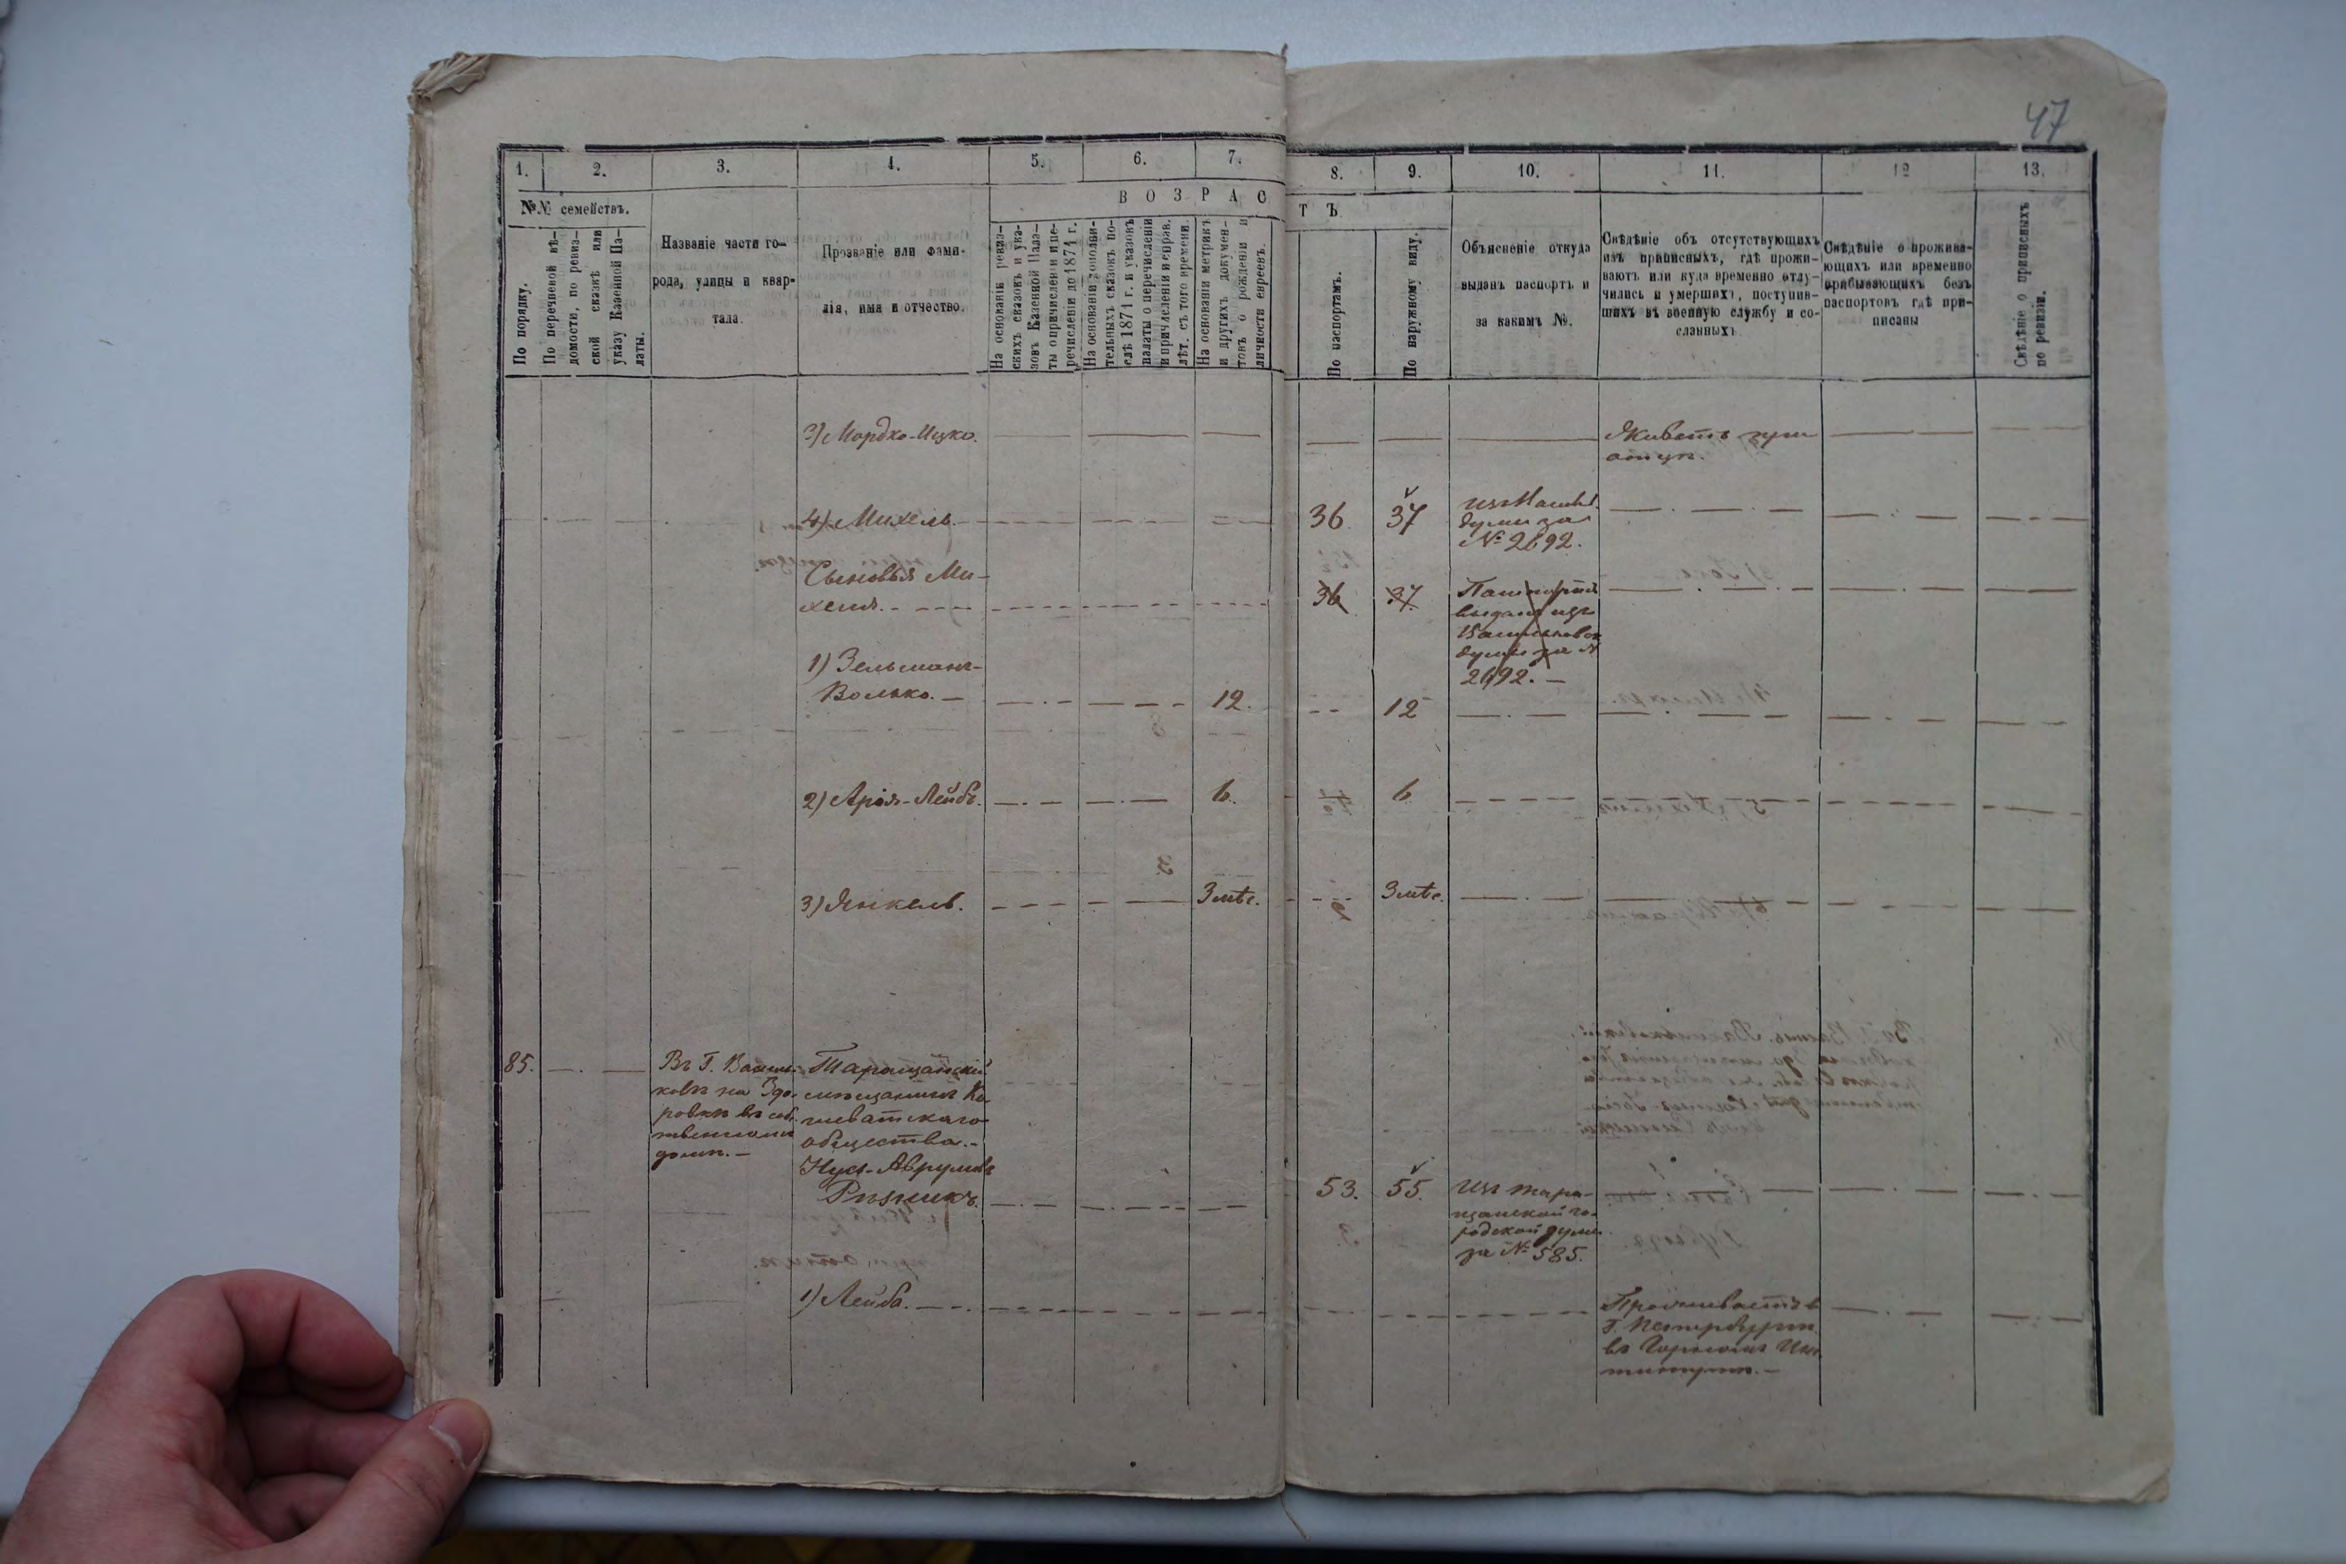 47
1.
2.
3.
4.
5.
6.
7.
8.
9.
10.
11.
12
13.
№№ семействъ.
По порядку.
По перечневой вѣ-
домости, по ревиз-
ской сказкѣ или
указу Казенной Па-
латы.
Названіе части го-
рода, улицы и квар-
тала.
Прозваніе или фами-
лія, имя и отчество.
ВОЗРАС
ТЪ
На основаніи ревиз-
скихъ сказокъ и ука-
зовъ Казенной Пала-
ты о причисленіи и пе-
речисленіи до 1871 г.
На основаніи дополни-
тельныхъ сказокъ по-
слѣ 1871 г. и указовъ
палаты о перечисленіи
и причисленіи и справ.
лѣт. съ того времени.
На основаніи метрикъ
и другихъ докумен-
товъ о рожденіи и
личности евреевъ.
По паспортамъ.
По наружному виду.
Объясненіе откуда
выданъ паспортъ и
за какимъ №.
Свѣдѣніе объ отсутствующихъ
изъ приписныхъ, гдѣ прожи-
ваютъ или куда временно отлу-
чились и умершихъ, поступив-
шихъ въ военную службу и со-
сланныхъ
Свѣдѣніе о прожива-
ющихъ или временно
прибывающихъ безъ
паспортовъ гдѣ при-
писаны
Свѣдѣніе о приписныхъ
по ревизіи.
3) Мордко-Ицко.
Живетъ при
отцѣ.
4) Михель.
36
37
думы за
№ 2692.
Сыновья Ми-
хеля.
36
37
Паспортъ
выданъ изъ
Васильковск
думы за №
2692.
1) Зельманъ-
Волько.
12.
12
2) Арія-Лейбъ.
6.
6
3) Янкель.
3 мѣс.
3 мѣс.
85.
Въ Г. Василь-
ковѣ на Здо-
ровкѣ въ соб.
твенномъ
домѣ.
Таращанскій
мѣщанинъ Ко-
шеватскаго
общества.
Нусъ-Аврумовъ
Рѣзникъ.
53.
55.
Изъ Тара-
щанской го-
родской думы
за № 585.
1) Лейба.
Проживаетъ в
Г. Петербургѣ
въ Горномъ Инс
титутѣ.